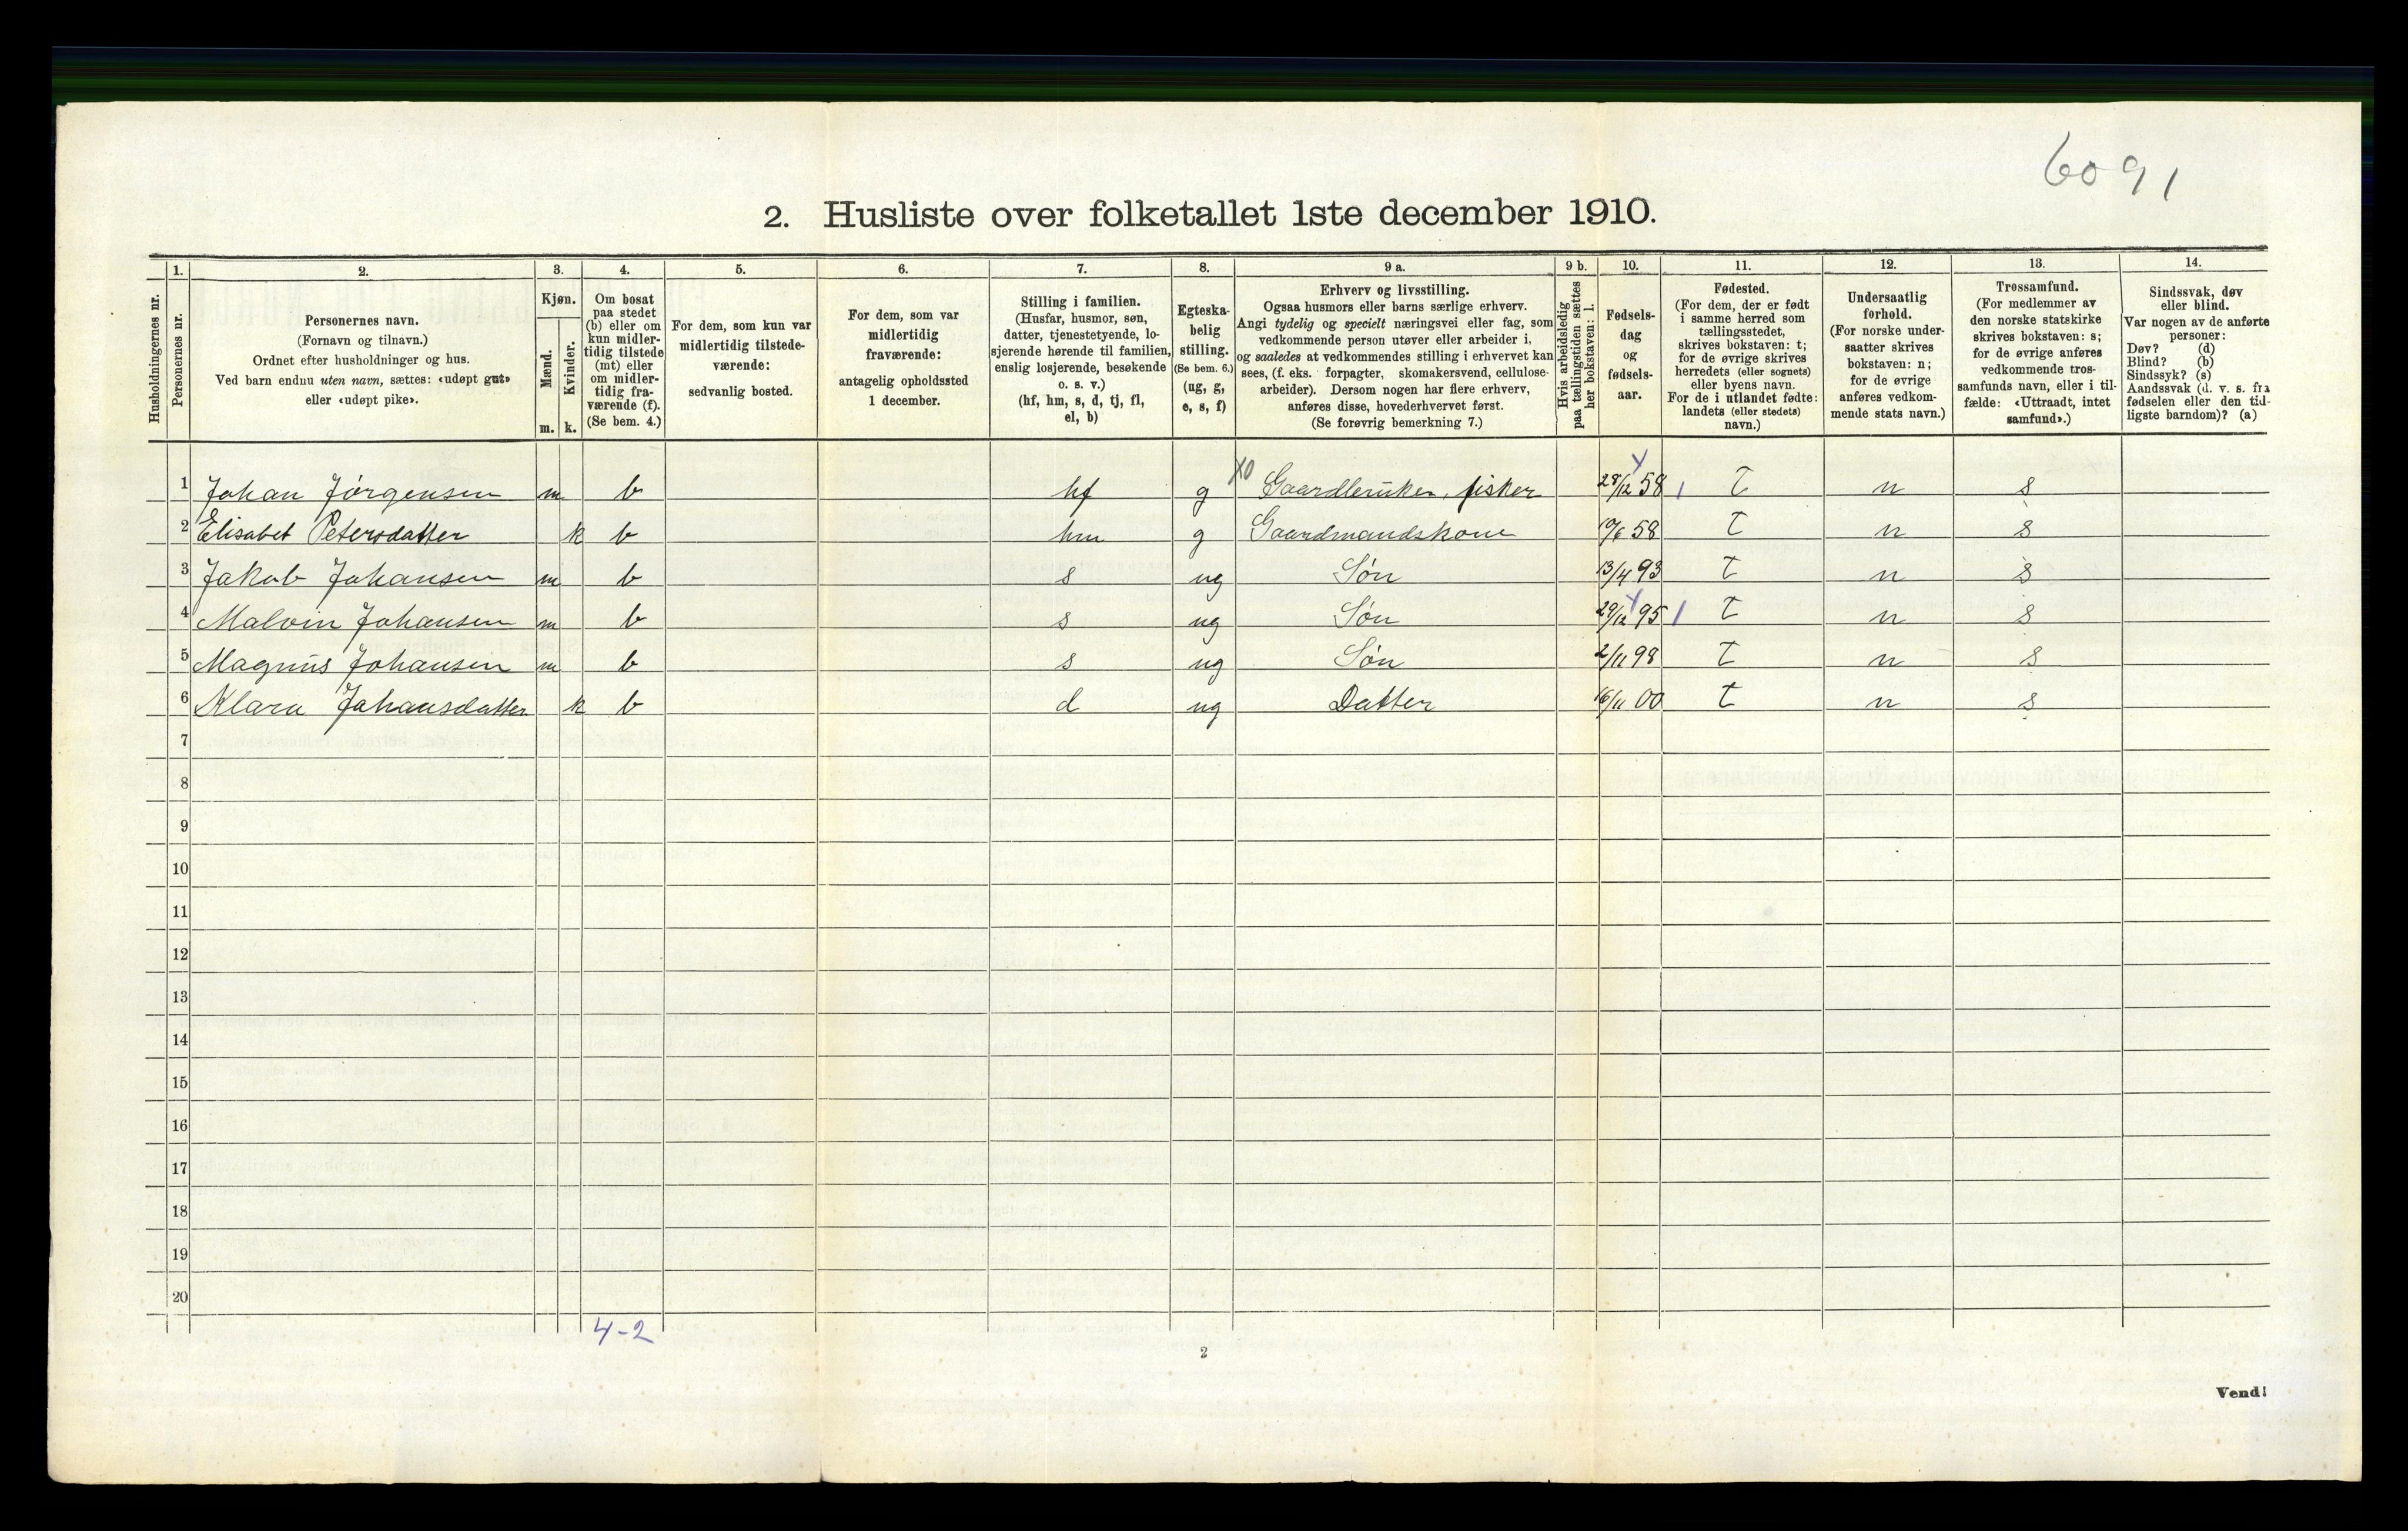 6091
2. Husliste over folketallet 1ste december 1910.
Husholdningernes nr.
1. Personernes nr.
2. Personernes navn.
(Fornavn og tilnavn.)
Ordnet efter husholdninger og hus.
Ved barn endnu uten navn, sættes: «udøpt gut»
eller «udøpt pike».
3. Kjøn.
Mænd. m.
Kvinder. k.
4. Om bosat
paa stedet
(b) eller om
kun midler-
tidig tilstede
(mt) eller
om midler-
tidig fra-
værende (f).
(Se bem. 4.)
5. For dem, som kun var
midlertidig tilstede-
værende:
sedvanlig bosted.
6. For dem, som var
midlertidig
fraværende:
antagelig opholdssted
1 december.
7. Stilling i familien.
(Husfar, husmor, søn,
datter, tjenestetyende, lo-
sjerende hørende til familien,
enslig losjerende, besøkende
o. s. v.)
(hf, hm, s, d, tj, fl,
el, b)
8. Egteska-
belig
stilling.
(Se bem. 6.)
(ug, g,
e, s, f)
9 a. Erhverv og livsstilling.
Ogsaa husmors eller barns særlige erhverv.
Angi tydelig og specielt næringsvei eller fag, som
vedkommende person utøver eller arbeider i,
og saaledes at vedkommendes stilling i erhvervet kan
sees, (f. eks. forpagter, skomakersvend, cellulose-
arbeider). Dersom nogen har flere erhverv,
anføres disse, hovederhvervet først.
(Se forøvrig bemerkning 7.)
9 b. Hvis arbeidsledig
paa tællingstiden sættes
her bokstaven: l.
10. Fødsels-
dag
og
fødsels-
aar.
11. Fødested.
(For dem, der er født
i samme herred som
tællingsstedet,
skrives bokstaven: t;
for de øvrige skrives
herredets (eller sognets)
eller byens navn.
For de i utlandet fødte:
landets (eller stedets)
navn.)
12. Undersaatlig
forhold.
(For norske under-
saatter skrives
bokstaven: n;
for de øvrige
anføres vedkom-
mende stats navn.)
13. Trossamfund.
(For medlemmer av
den norske statskirke
skrives bokstaven: s;
for de øvrige anføres
vedkommende tros-
samfunds navn, eller i til-
fælde: «Uttraadt, intet
samfund».)
14. Sindssvak, døv
eller blind.
Var nogen av de anførte
personer:
Døv? (d)
Blind? (b)
Sindssyk? (s)
Aandssvak (d. v. s. fra
fødselen eller den tid-
ligste barndom)? (a)
1 Johan Jørgensen m b hf g X0 Gaardbruker, fisker 28/12 58 t n s
2 Elisabet Petersdatter k b hm g Gaardmandskone 19/6 58 t n s
3 Jakob Johansen m b s ug Søn 13/4 93 t n s
4 Malvin Johansen m b s ug Søn 29/12 95 t n s
5 Magnus Johansen m b s ug Søn 2/11 98 t n s
6 Klara Johansdatter k b d ug Datter 16/11 00 t n s
7
8
9
10
11
12
13
14
15
16
17
18
19
20
4-2
2
Vend!